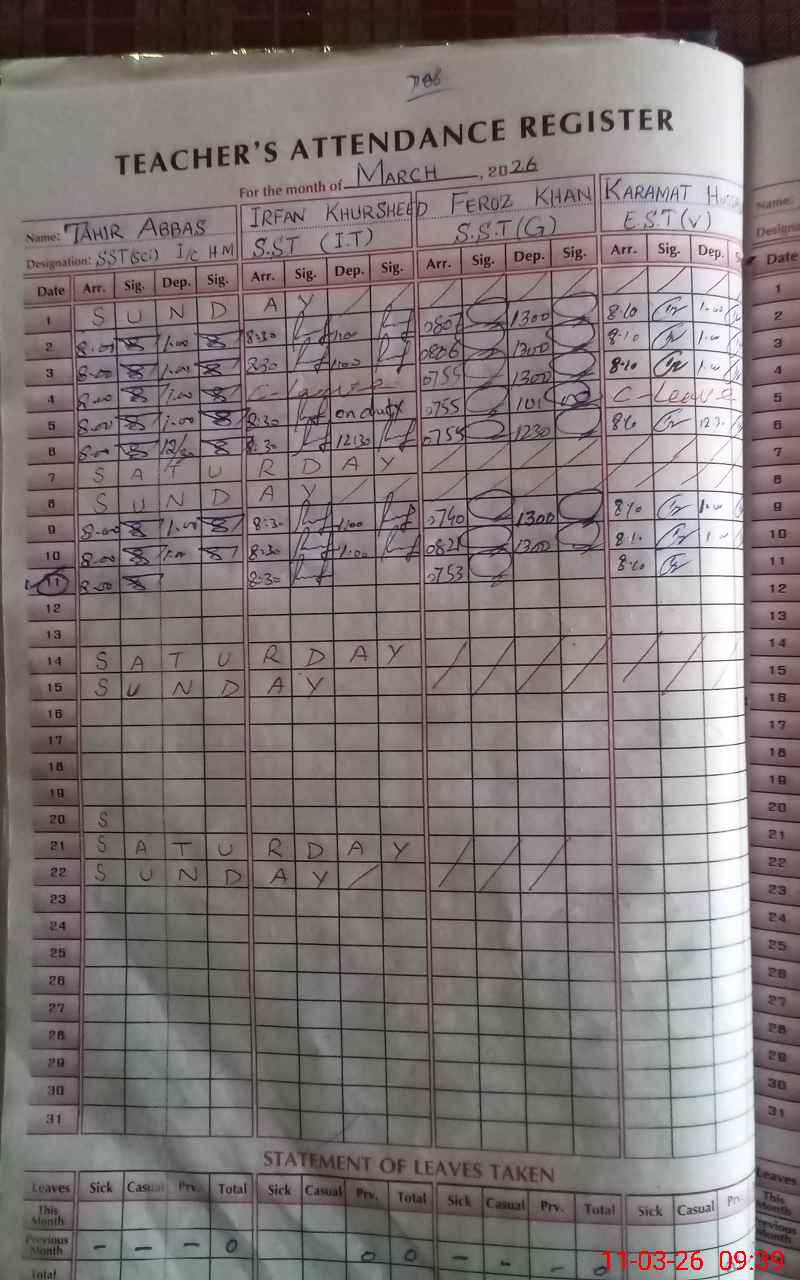 TEACHER'S ATTENDANCE REGISTER
For the month of MARCH, 2026
Name: TAHIR ABBAS IRFAN KHURSHEED FEROZ KHAN KARAMAT
Designation: SST(Sci) I/C H M S.ST (I.T) S.S.T(G) E.S.T(V)
Date Arr. Sig. Dep. Sig. Arr. Sig. Dep. Sig. Arr. Sig. Dep. Sig. Arr. Sig. Dep.
1 S U N D A Y
2 8.00 1.00 8:30 1:00 0807 1300 8:10 1:00
3 8.00 1.00 8:30 1:00 0806 1300 8:10 1.00
4 8.00 1.00 C-Leave 0755 1300 8:10 1.00
5 8.00 1.00 8:30 on duty 0755 C-Leave
6 8.00 12/30 8:30 12:30 0755 1230
7 S A T U R D A Y
8 S U N D A Y
9 8.00 1.00 8:30 1:00 0740 1300 8:10 1.00
10 8.00 1.00 8:30 1:00 0821 1300 8:10
11 8.00 8:30 0753 8:10
12
13
14 S A T U R D A Y
15 S U N D A Y
16
17
18
19
20 S
21 S A T U R D A Y
22 S U N D A Y
23
24
25
26
27
28
29
30
31
STATEMENT OF LEAVES TAKEN
Leaves Sick Casual Prv. Total Sick Casual Prv. Total Sick Casual Prv. Total Sick Casual
This Month
Previous Month - - - 0 0 0 - - - 0
Total
Name:
Date
1
2
3
4
5
6
7
8
9
10
11
12
13
14
15
16
17
18
19
20
21
22
23
24
25
26
27
28
29
30
31
Leaves
This Month
Previous Month
Total
11-03-26 09:39